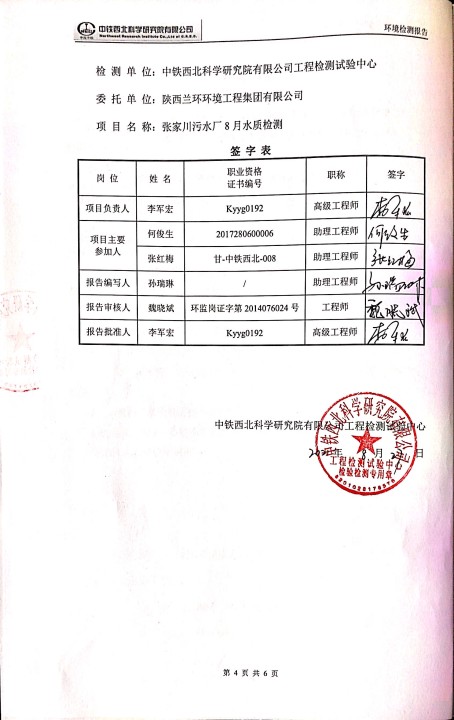 中铁西北科学研究院有限公司
Northwest Research Institute Co.,Ltd of C.R.E.C.
环境检测报告
检 测 单 位：中铁西北科学研究院有限公司工程检测试验中心
委 托 单 位：陕西兰环环境工程集团有限公司
项 目 名 称：张家川污水厂 8 月水质检测
签 字 表
岗 位 姓 名 职业资格证书编号 职称 签字
项目负责人 李军宏 Kyyg0192 高级工程师
项目主要参加人 何俊生 2017280600006 助理工程师 何俊生
张红梅 甘-中铁西北-008 助理工程师 张红梅
报告编写人 孙瑞琳 / 助理工程师
报告审核人 魏晓斌 环监岗证字第 2014076024 号 工程师 魏晓斌
报告批准人 李军宏 Kyyg0192 高级工程师
中铁西北科学研究院有限公司工程检测试验中心
年 8 月 日
中铁西北科学研究院有限公司
工程检测试验中心
检验检测专用章
第 4 页 共 6 页